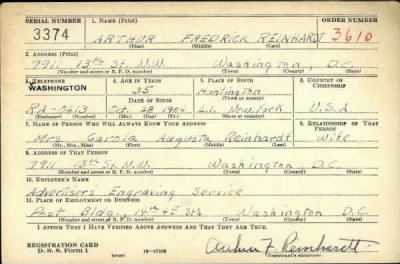 SERIAL NUMBER 1. NAME (Print) ORDER NUMBER
3374 ARTHUR FREDRICK REINHARDT 3610
(First) (Middle) (Last)
2. ADDRESS (Print)
13th St. N.W. Washington, D.C.
(Number and street or R. F. D. number) (Town) (County) (State)
3. TELEPHONE 4. AGE IN YEARS 5. PLACE OF BIRTH 6. COUNTRY OF CITIZENSHIP
WASHINGTON 35 Huntington
DATE OF BIRTH
RA-0613 Oct. 28 1904 L.I. New York U.S.A.
(Exchange) (Number) (Mo.) (Day) (Yr.) (State or country)
7. NAME OF PERSON WHO WILL ALWAYS KNOW YOUR ADDRESS 8. RELATIONSHIP OF THAT PERSON
Mrs. Carola Augusta Reinhardt Wife
(Mr., Mrs., Miss) (First) (Middle) (Last)
9. ADDRESS OF THAT PERSON
13th St. N.W. Washington D.C.
(Number and street or R. F. D. number) (Town) (County) (State)
10. EMPLOYER'S NAME
Advertisers Engraving Service
11. PLACE OF EMPLOYMENT OR BUSINESS
Post Bldg., Washington D.C.
(Number and street or R. F. D. number) (Town) (County) (State)
I AFFIRM THAT I HAVE VERIFIED ABOVE ANSWERS AND THAT THEY ARE TRUE.
REGISTRATION CARD
D. S. S. Form 1 16—17105 Arthur F. Reinhardt
(Registrant's signature)